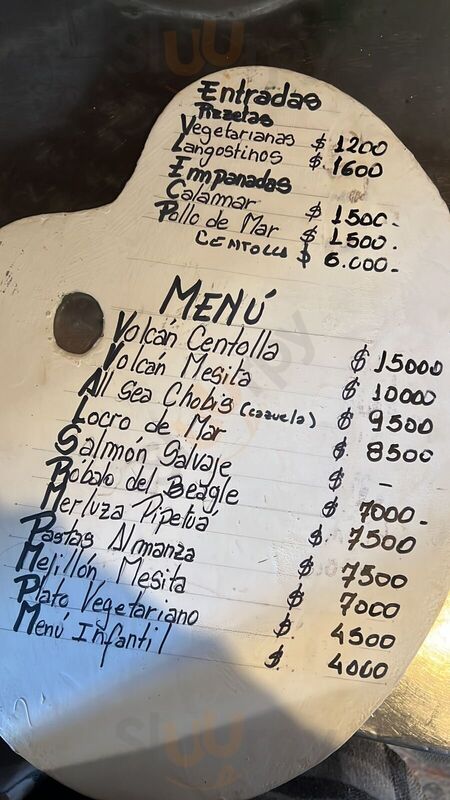 Entradas
Pizzetas
Vegetarianas $ 1200
Langostinos $ 1600
Empanadas
Calamar $ 1500-
Pollo de Mar $ 1500.
CENTOLLA $ 6.000-
MENÚ
Volcán Centolla $ 15000
Volcán Mesita $ 10000
All Sea Chobis (cazuela) $ 9500
Locro de Mar $ 8500
Salmón Salvaje $ -
Róbalo del Beagle $ 7000-
Merluza Pipetuá $. 7500
Pastas Almanza $ 7500
Mejillón Mesita $ 7000
Plato Vegetariano $. 4500
Menú Infantil $. 4000